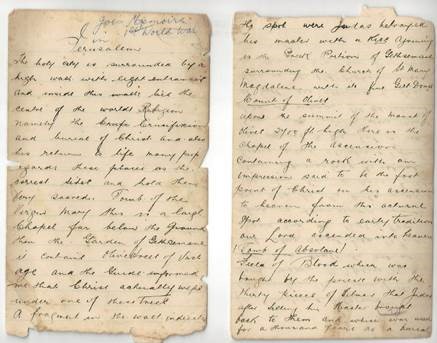 Joes Memoirs
1st World War
in
Jerusalem
The holy city is surrounded by a
high wall with eight entrances
and inside this walls hid the
centre of the worlds Religion
namely the Crucifixion
and bureal of Christ and also
his return to life many people
regards these places as the
correct sites and hold them
very sacred. Tomb of the
Virgin Mary this is a large
Chapel far below the Ground
then the Garden of Gethsemane
is contains Olive trees of vast
age and the Guide informed
me that Christ actually wept
under one of these trees
A fragment in the wall indicates
the spot were Judas betrayed
his master with a Kiss Ajoining
is the Greek Portion of Gethsemane
surrounding the Church of St Mary
Magdalene with its fine Gilt Domes
Mount of Olives
upon the summit of the mount of
Olives 2703 ft high there is the
chapel of the ascension
Containing a rock with an
impression said to be the foot
print of Christ on his ascension
to heaven from this actural
Spot according to early tradition
our Lord ascended into heaven
Tomb of Absolane
Field of Blood which was
bought by the priests with the
thirty pieces of Silver that Judas
after selling his Master
back to them and where was used
for a thousand years as a bureal